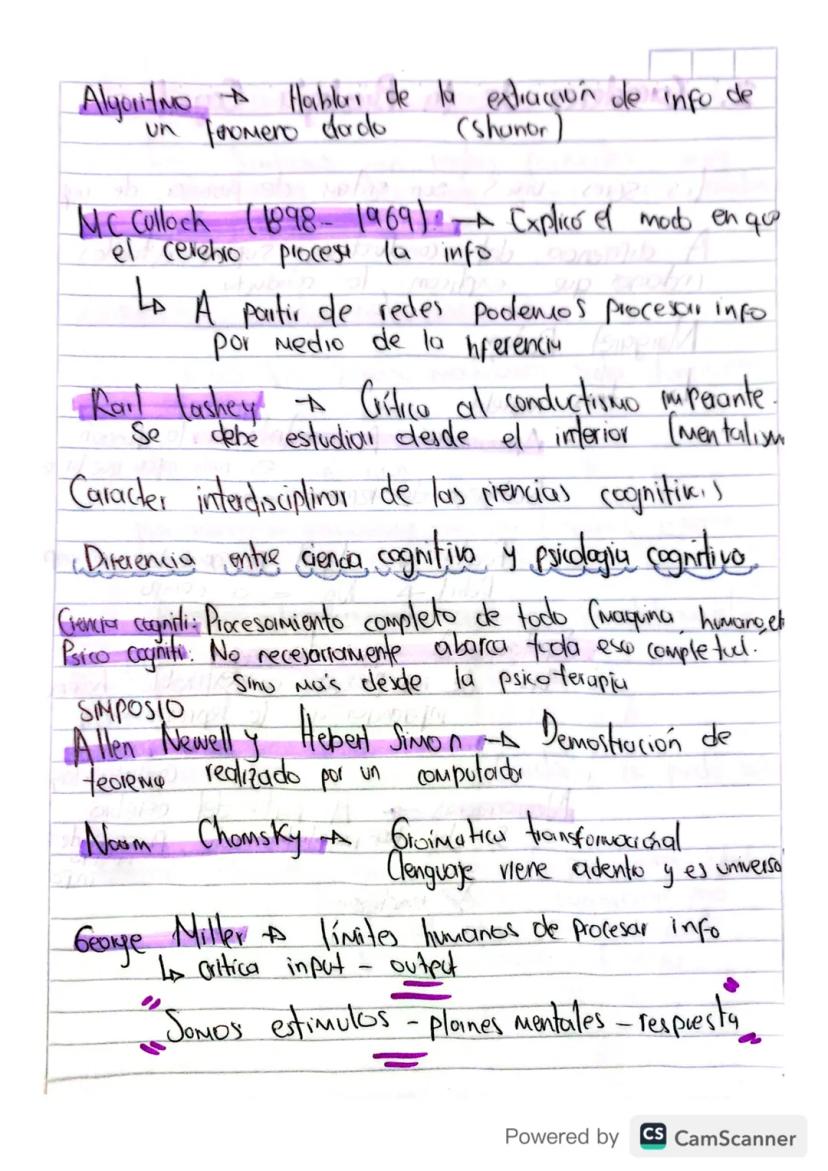 Algoritmo → Hablar de la extracción de info de
un fenomero dado (Shanor)
Mc Colloch (1898 - 1969): → Explicó el modo en que
el cerebro procesa la info
↳ A partir de redes podemos procesar info
por medio de la hferencia
Karl lashey → Crítica al conductismo imperante.
Se debe estudiar desde el interior (mentalism
Caracter interdisciplinar de las ciencias cognitivas
Diferencia entre ciencia cognitiva y psicología cognitiva
Ciencia cogniti: Procesamiento completo de todo (maquina, humano, et
Psico cogniti: No necesariamente abarca toda eso completud.
Sino más desde la psicoterapia
SIMPOSIO
Allen Newell y Hebert Simon → Demostración de
teorema realizado por un computador
Noam Chomsky → Gramatica transformacional
Clenguaje viene adento y es universa
George Miller → límites humanos de procesar info
↳ critica input - output
" Somos estimulos - planes mentales - respuesta "
Powered by CS CamScanner